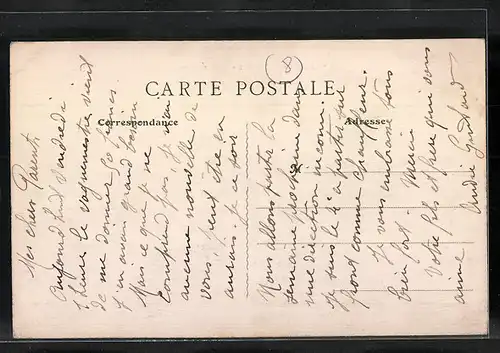 CARTE POSTALE
Correspondance
Adresse
Mes chers Parents
Aujourd'hui Vendredi
1 heure le vaguemestre vient
de me donner 50 francs.
J'en avais grand besoin
Mais ce que je ne
Comprend pas, je n'ai
aucune nouvelle de
vous, peut être en
aurais-je ce soir
Nous allons partir la
semaine prochaine dans
une direction inconnu.
Je suis le à partir sur
front comme chauffeur.
Je vous embrasse tous
bien fort. Merci
Votre fils et frère qui vous
aime André